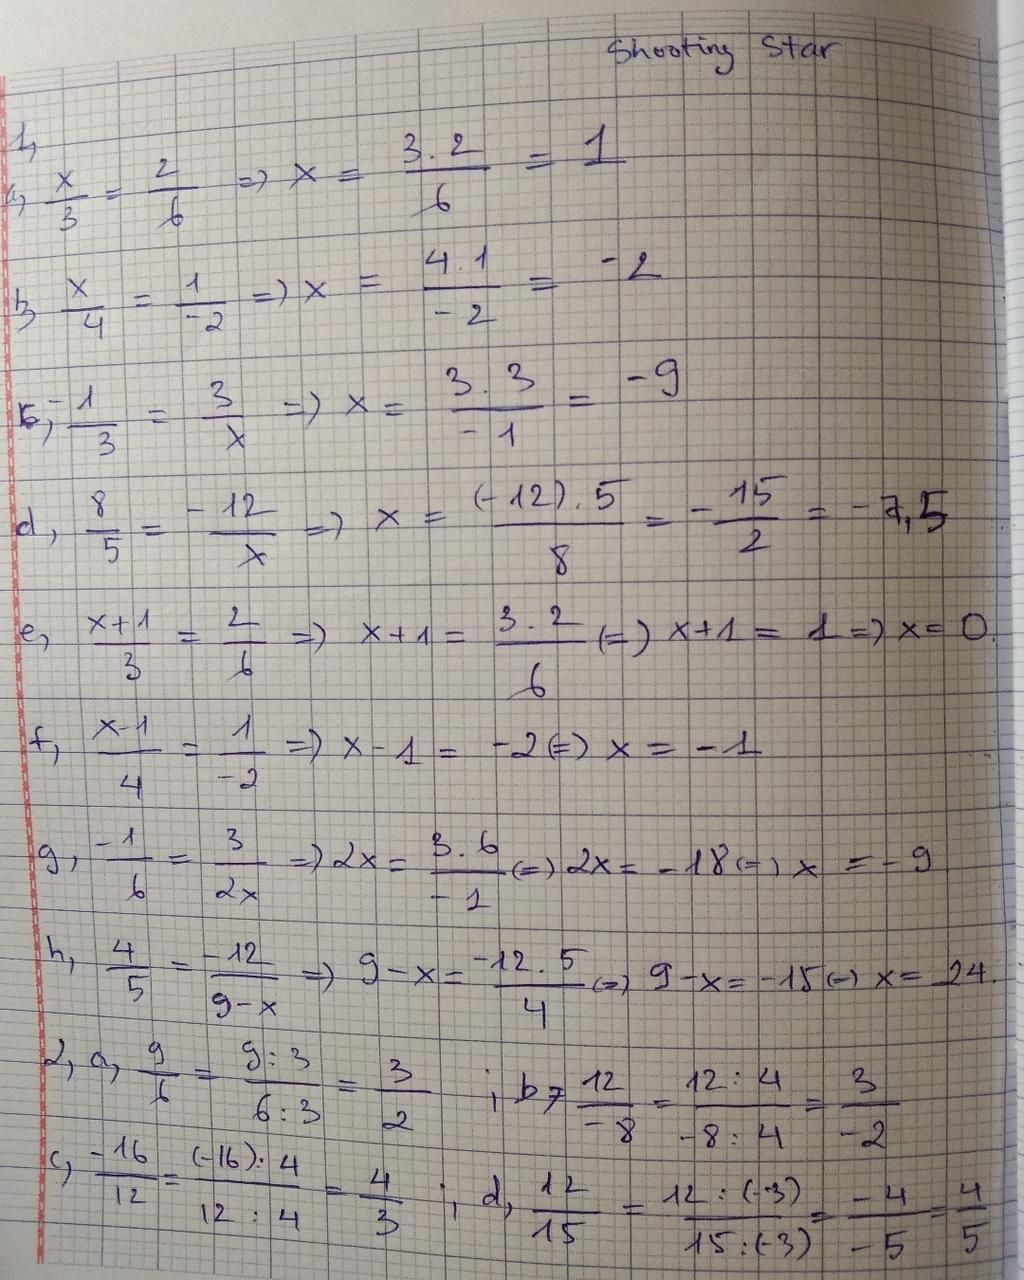 Shooting Star
1,
a, x/3 = 2/6 => x = 3.2/6 = 1
b, x/4 = 1/-2 => x = 4.1/-2 = -2
c, -1/3 = 3/x => x = 3.3/-1 = -9
d, 8/5 = -12/x => x = (-12).5/8 = -15/2 = -7,5
e, x+1/3 = 2/6 => x+1 = 3.2/6 (=) x+1 = 1 => x = 0.
f, x-1/4 = 1/-2 => x-1 = -2 (=) x = -1
g, -1/6 = 3/2x => 2x = 3.6/-1 (=) 2x = -18 (=) x = -9
h, 4/5 = -12/9-x => 9-x = -12.5/4 (=) 9-x = -15 (=) x = 24.
2, a, 9/6 = 9:3/6:3 = 3/2 ; b, 12/-8 = 12:4/-8:4 = 3/-2
c, -16/12 = (-16):4/12:4 = 4/3 ; d, 12/15 = 12:(-3)/15:(-3) = -4/-5 = 4/5